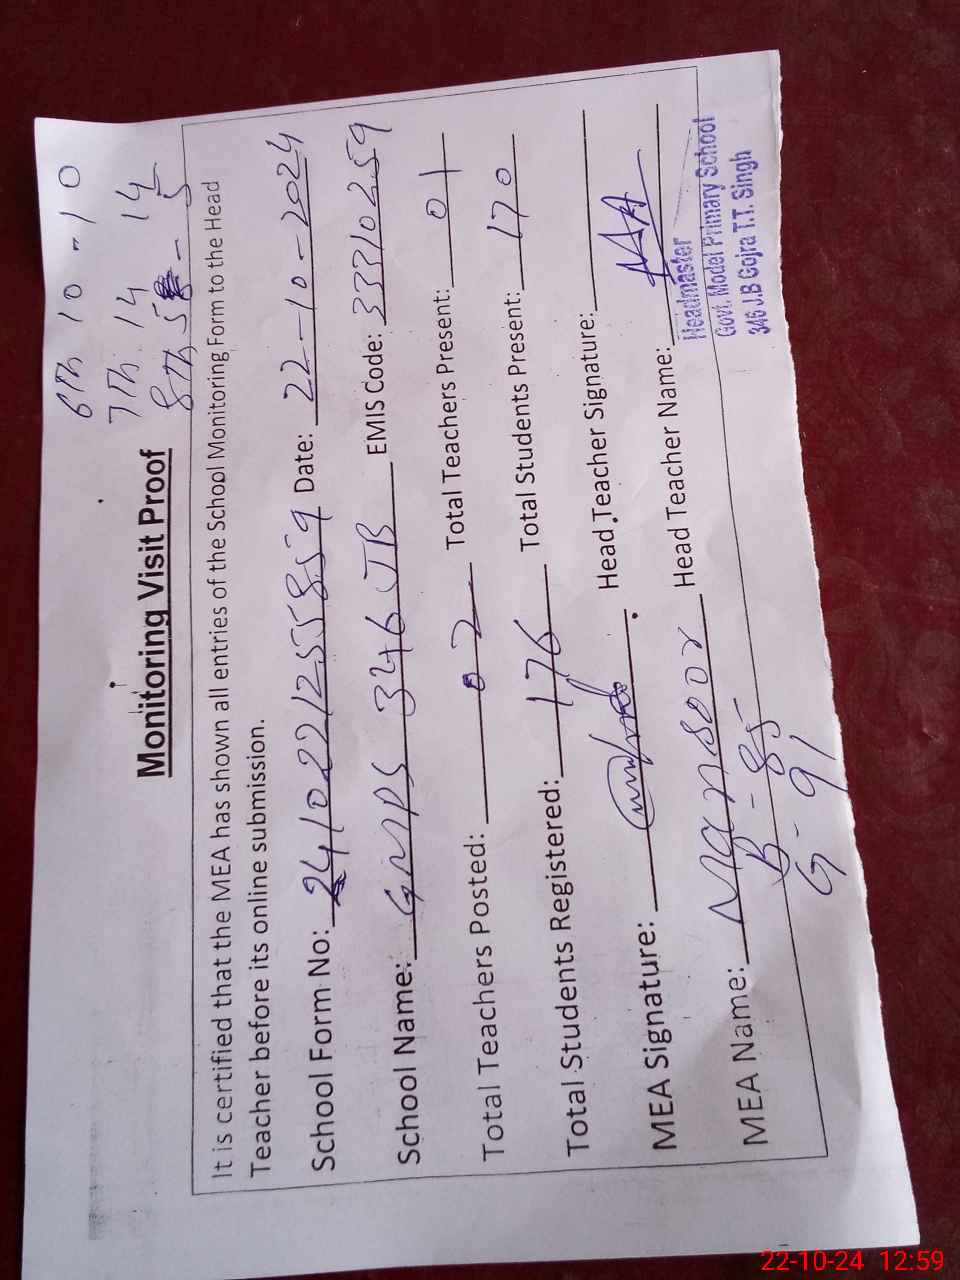 6th 10 - 10
7th 14 14
8th 5 - 5
Monitoring Visit Proof
It is certified that the MEA has shown all entries of the School Monitoring Form to the Head
Teacher before its online submission.
School Form No: 2410221255859 Date: 22-10-2024
School Name: GMPS 346 JB EMIS Code: 33310259
Total Teachers Posted: 02 Total Teachers Present: 01
Total Students Registered: 176 Total Students Present: 170
MEA Signature: Head Teacher Signature:
MEA Name: Mansoor Head Teacher Name:
Headmaster
Govt. Model Primary School
346 J.B Gojra T.T. Singh
B - 85
G - 91
22-10-24 12:59